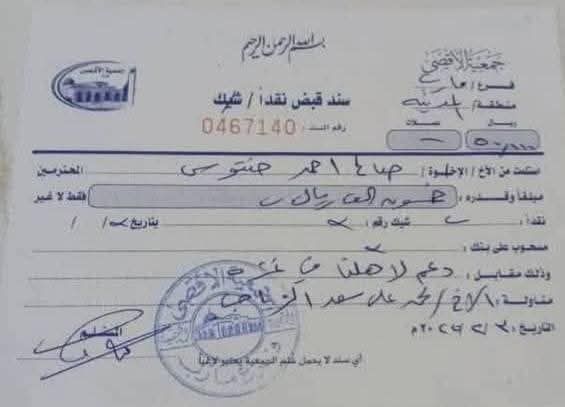 بسم الله الرحمن الرحيم
جمعية الأقصى
جمعية الأقصى
فرع / مارب
منطقة / المدينة
سند قبض نقداً / شيك
رقم السند : 0467140
ريال
فلسات
استلمت من الأخ / الإخوة / صالح احمد حنتوس المحترمين
مبلغاً وقدره : خمسون الف ريال فقط لا غير
نقداً : شيك رقم : بتاريخ / / م
مسحوب على بنك :
وذلك مقابل : دعم لاهلنا في غزة
مناولة : الاخ / محمد علي سعد
التاريخ : م
المستلم
أي سند لا يحمل ختم الجمعية يعتبر لاغياً